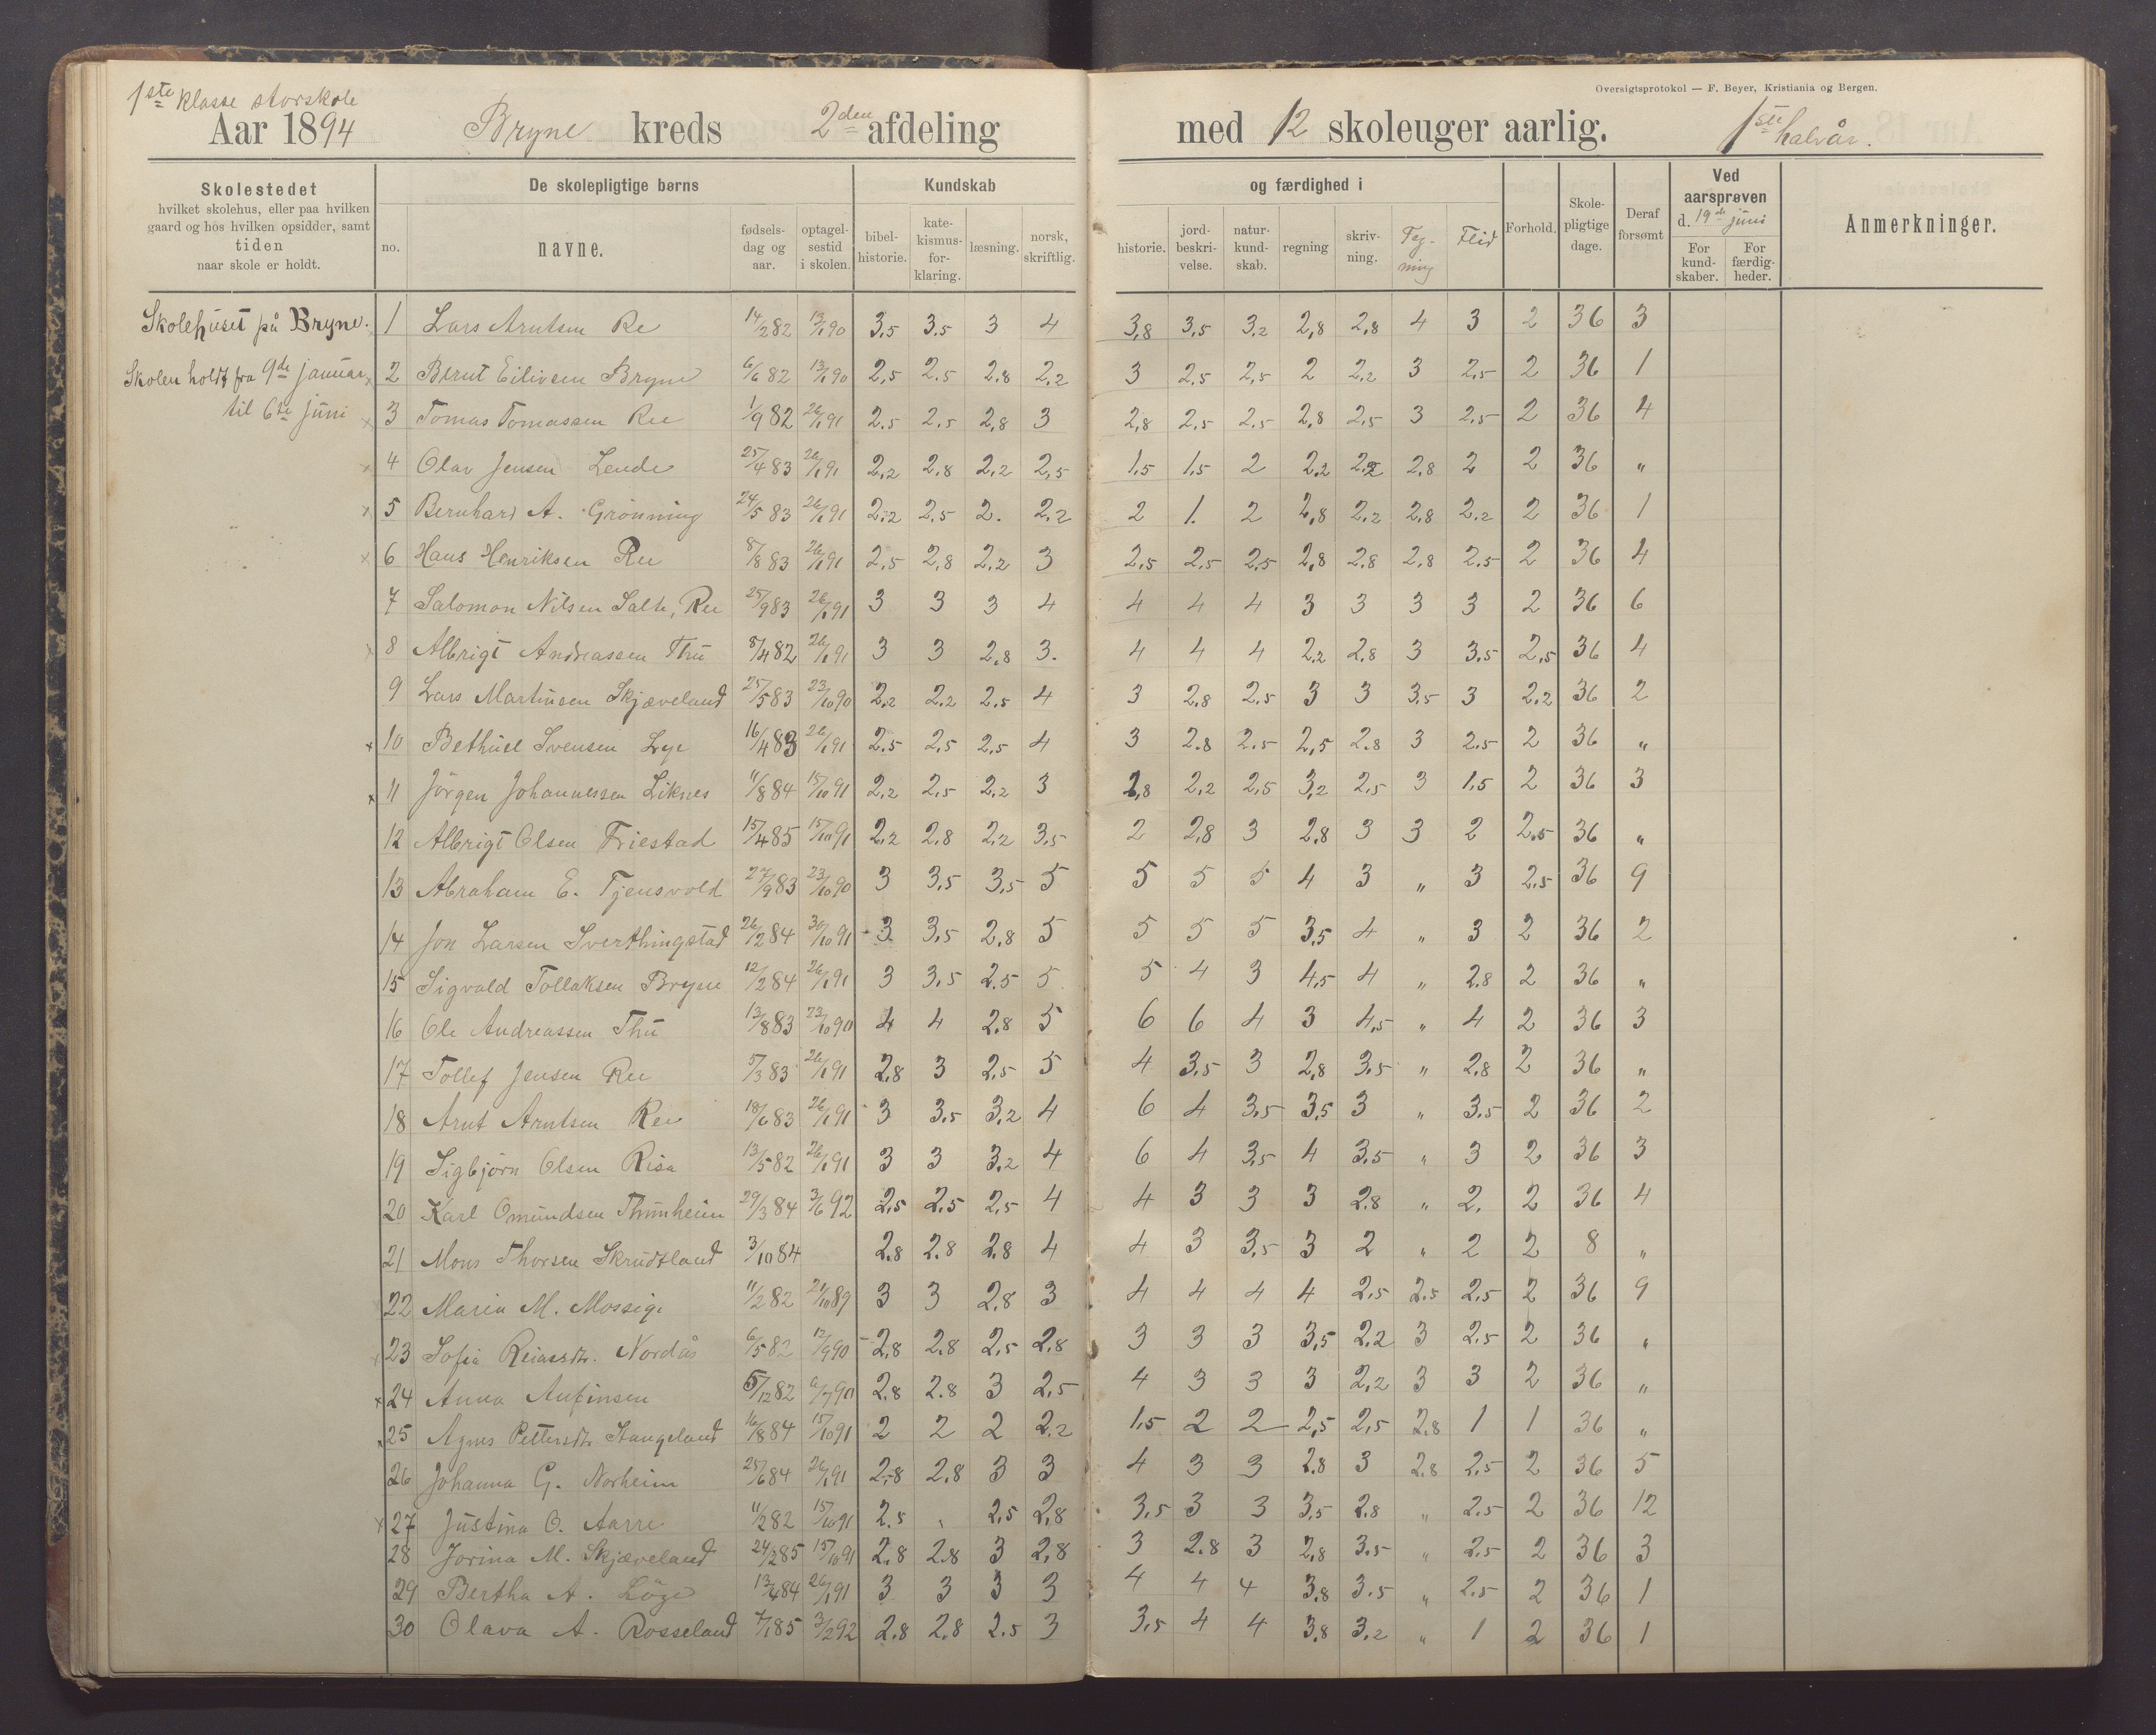 1ste klasse storskole
Oversigtsprotokol — F. Beyer, Kristiania og Bergen.
Aar 1894 Bryne kreds 2den afdeling med 12 skoleuger aarlig. 1ste halvår.
Skolestedet hvilket skolehus, eller paa hvilken gaard og hos hvilken opsidder, samt tiden naar skole er holdt.
De skolepligtige børns
no. navne. fødsels-dag og aar. optagel-sestid i skolen.
Kundskab og færdighed i
bibel-historie. kate-kismus-for-klaring. læsning. norsk, skriftlig. historie. jord-beskri-velse. natur-kund-skab. regning skriv-ning. Teg-ning Flid
Forhold. Skole-pligtige dage. Deraf forsømt
Ved aarsprøven d. 19de juni
For kund-skaber. For færdig-heder.
Anmerkninger.
Skolehuset på Bryne.
Skolen holdt fra 9de januar
til 6te juni
1 Lars Arntsen Re 14/2 82 13/1 90 3,5 3.5 3 4 3,8 3,5 3.2 2,8 2,8 4 3 2 36 3
2 Bernt Eilivsen Bryne 6/6 82 13/1 90 2,5 2.5 2.8 2,2 3 2.5 2,5 2 2,2 3 2,5 2 36 1
3 Tomas Tomassen Ree 1/9 82 26/1 91 2.5 2.5 2,8 3 2,8 2,5 2.5 2,8 2,5 3 2,5 2 36 4
4 Olav Jensen Lende 25/4 83 26/1 91 2,2 2,8 2,2 2,5 1.5 1.5 2 2,2 2,2 2,8 2 2 36 "
5 Bernhard A. Grönning 24/5 83 26/1 91 2,2 2,5 2. 2,2 2 1. 2 2,8 2,2 2,8 2,2 2 36 1
6 Hans Henriksen Ree 8/8 83 26/1 91 2,5 2,8 2,2 3 2,5 2,5 2,5 2,8 2,8 2,8 2,5 2 36 4
7 Salomon Nilsen Salte, Ree 25/9 83 26/1 91 3 3 3 4 4 4 4 3 3 3 3 2 36 6
8 Albrigt Andreassen Thu 8/4 82 26/1 91 3 3 2,8 3. 4 4 4 2,2 2,8 3 3,5 2,5 36 4
9 Lars Martinsen Skjæveland 25/5 83 23/10 90 2,2 2,2 2,5 4 3 2,8 2,5 3 3 3,5 3 2,2 36 2
10 Bethuel Svensen Lye 16/4 83 26/1 91 2,5 2,5 2,5 4 3 2.8 2,5 2,5 2,8 3 2,5 2 36 "
11 Jörgen Johannessen Liknes 11/8 84 15/10 91 2,2 2,5 2,2 3 2,8 2,2 2,5 3,2 2,5 3 1,5 2 36 3
12 Albrigt Olsen Friestad 15/4 85 15/10 91 2,2 2,8 2,2 3,5 2 2,8 3 2,8 3 3 2 2,5 36 "
13 Abraham E. Tjensvold 27/9 83 23/10 90 3 3,5 3,5 5 5 5 5 4 3 " 3 2,5 36 9
14 Jon Larsen Sverthingstad 26/2 84 30/10 91 3 3,5 2,8 5 5 5 5 3,5 4 " 3 2 36 2
15 Sigvald Tollaksen Bryne 12/2 84 26/1 91 3 3,5 2.5 5 5 4 3 4,5 4 " 2.8 2 36 "
16 Ole Andreassen Thu 13/8 83 23/10 90 4 4 2.8 5 6 6 4 3 4,5 " 4 2 36 3
17 Tollef Jensen Ree 5/3 83 26/1 91 2.8 3 2,5 5 4 3,5 3 2,8 3,5 " 2,8 2 36 "
18 Arnt Arntsen Ree 18/6 83 26/1 91 3 3,5 3,2 4 6 4 3,5 3,5 3 " 3,5 2 36 2
19 Sigbjörn Olsen Risa 13/5 82 26/1 91 3 3 3,2 4 6 4 3,5 4 3,5 " 3 2 36 3
20 Karl Omundsen Thunheim 29/3 84 3/6 92 2,5 2,5 2,5 4 4 3 3 3 2.8 " 2. 2 36 4
21 Mons Thorsen Skrudtland 3/10 84 2.8 2.8 2.8 4 4 3 3,5 3 2 " 2 2 8 "
22 Maria M. Mossige 11/2 82 21/10 89 3 3 2,8 3 4 4 4 4 2,5 2,5 2,5 2 36 9
23 Sofia Reiassdtr. Nordås 6/5 82 12/9 90 2,8 2.8 2,5 2,8 3 3 3 3,5 2,2 3 2.5 2 36 "
24 Anna Anfinsen 5/12 82 90 2.8 2.8 3 2,5 4 3 3 3 2,2 3 3 2 36 "
25 Agnes Pettersdtr. Stangeland 16/8 84 15/10 91 2 2 2 2.2 1,5 2 2 2,5 2,5 2.8 1 1 36 "
26 Johanna G. Norheim 25/6 84 26/1 91 2,8 2,8 3 3 4 3 3 2.8 3 2.8 2,5 2 36 5
27 Justina O. Aarre 11/2 82 15/10 91 2.8 , 2,5 2,8 3,5 3 3 3,5 2.8 " 2,5 2 36 12
28 Jorina M. Skjæveland 24/2 85 15/10 91 2,8 2.8 3 2,8 3 2.8 3 2,8 3.5 " 2,5 2 36 3
29 Bertha A. Löge 13/4 84 26/1 91 3 3 3 3 4 4 4 3,8 3.5 " 2.5 2 36 1
30 Olava A. Rosseland 7/1 85 3/2 92 2.8 2,8 2.5 3 3,5 4 4 3,8 3,2 " 1 2 36 1